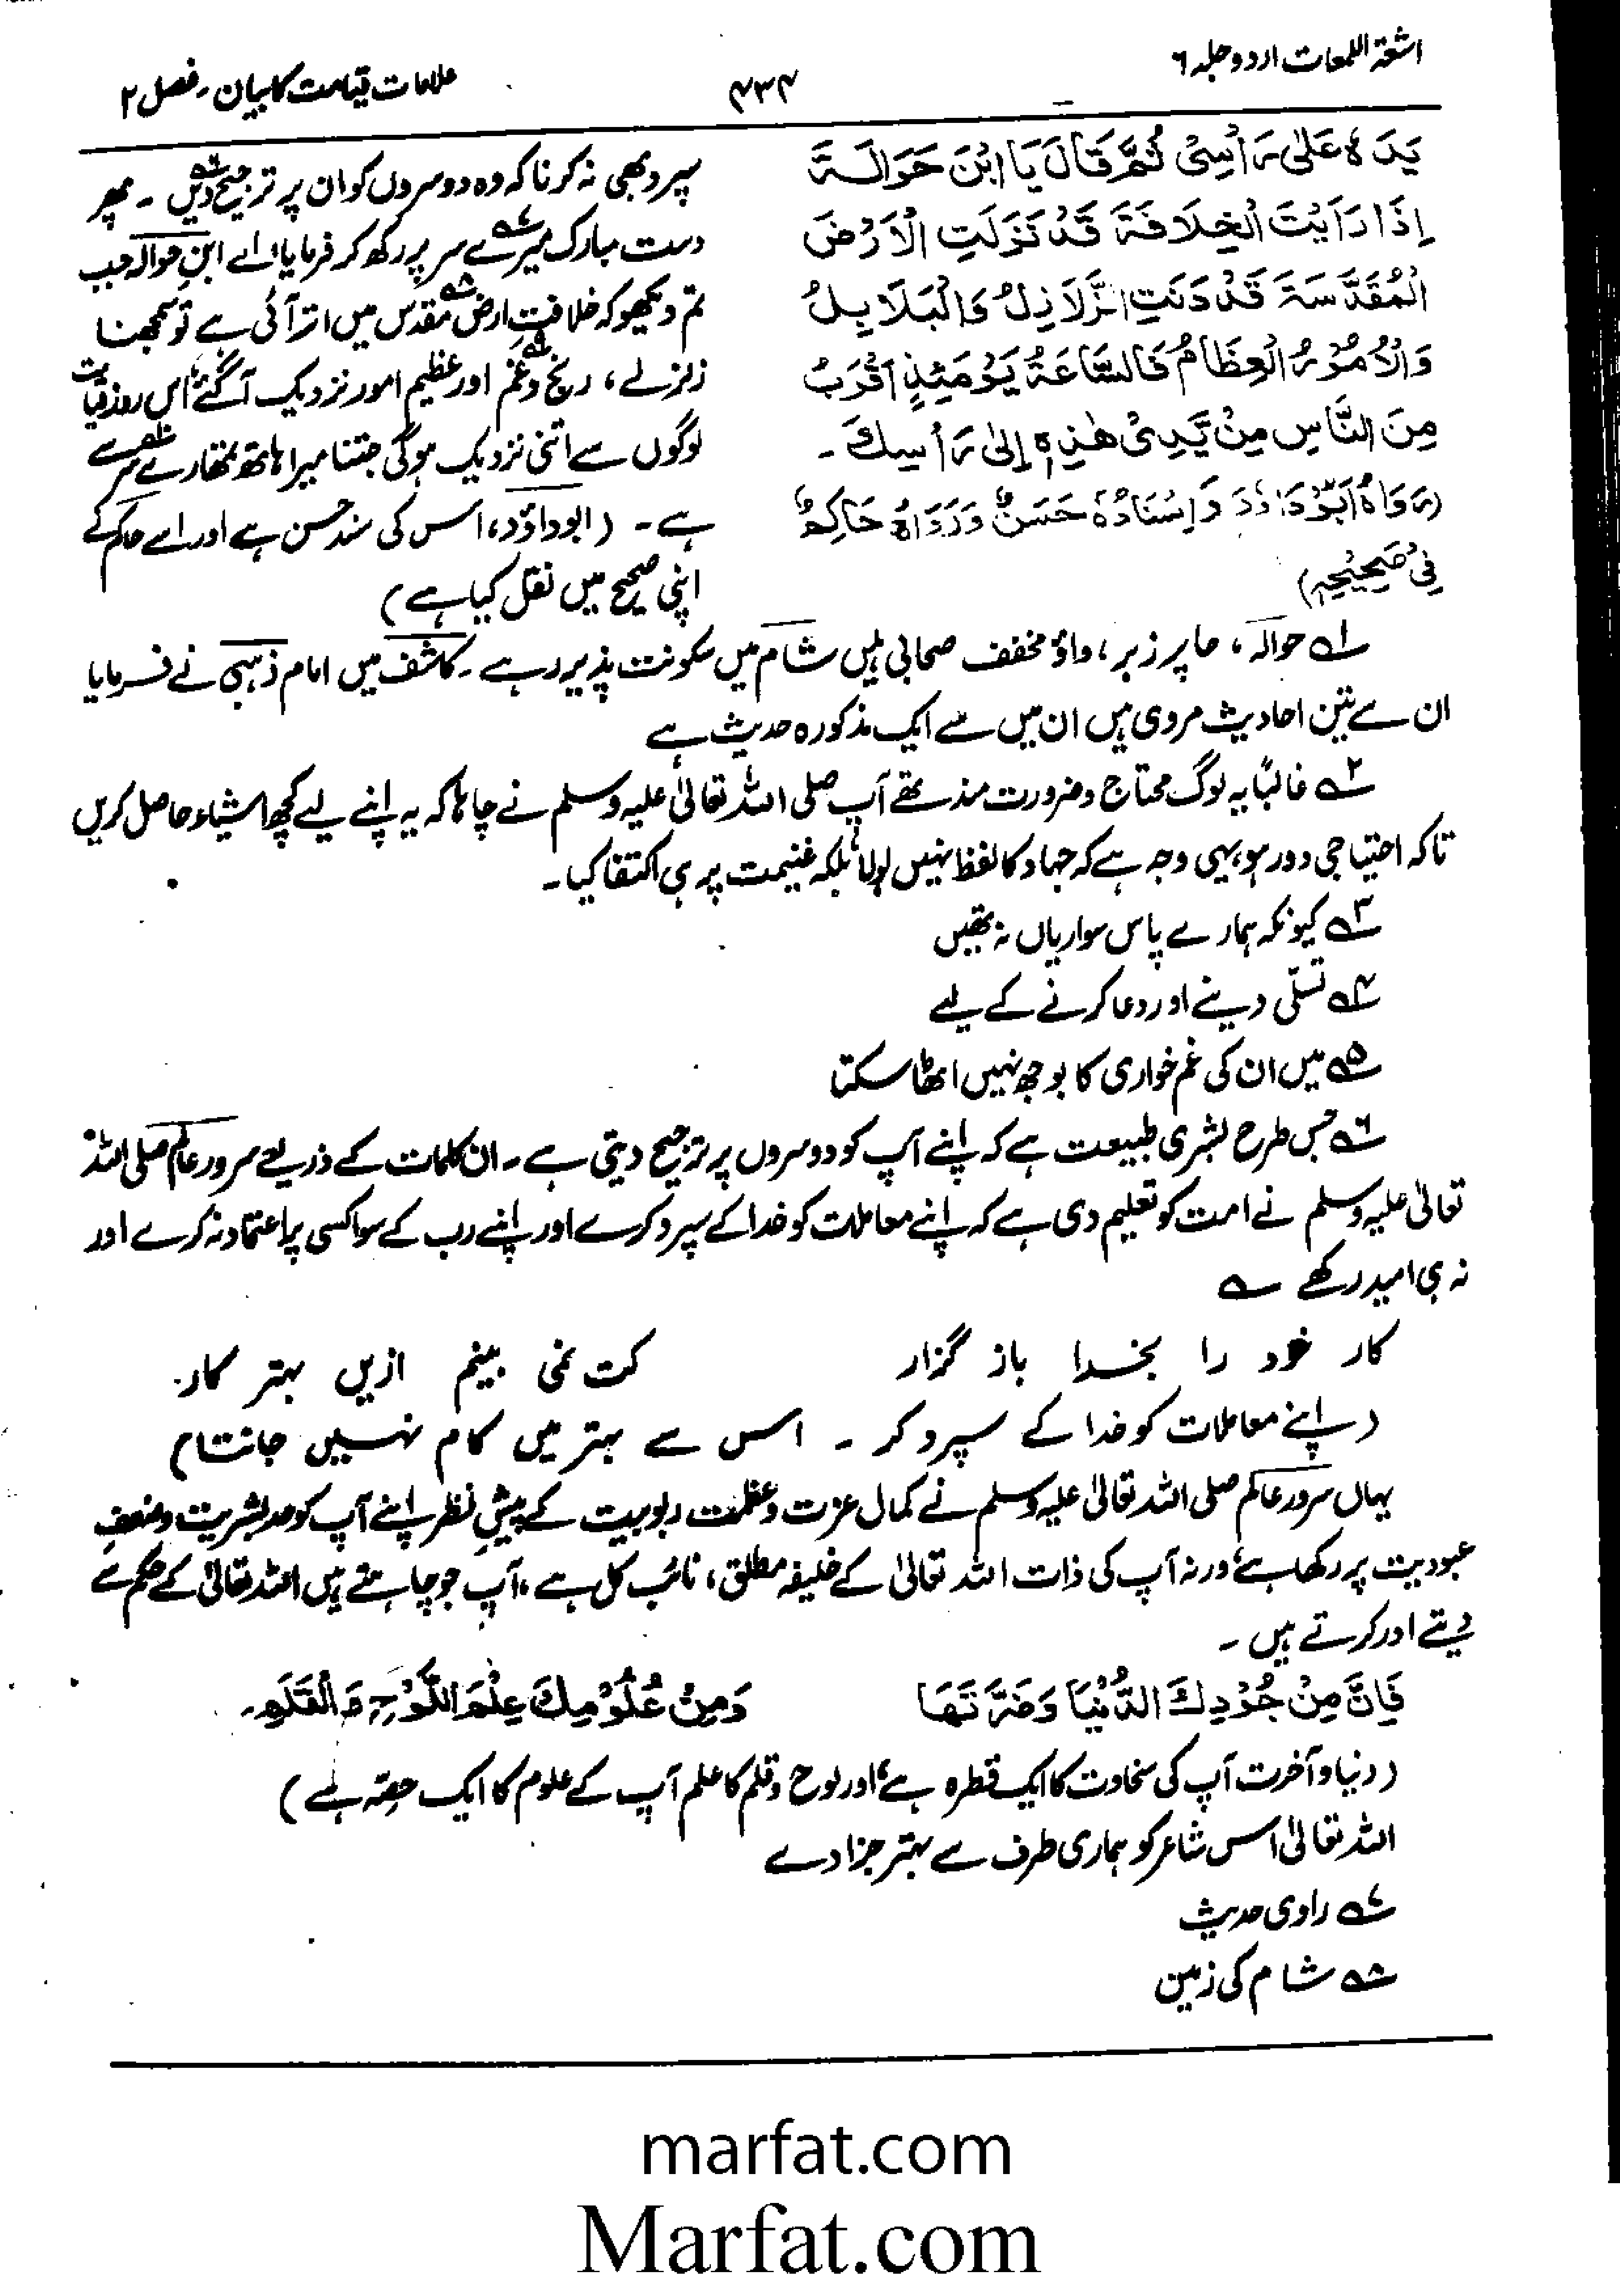 اشعۃ اللمعات اردو جلد ۶
۴۳۴
علامات قیامت کا بیان۔ فصل ۲
یَدَہٗ عَلٰی رَأْسِیْ ثُمَّ قَالَ یَا ابْنَ حَوَالَۃَ
اِذَا رَاَیْتَ الْخِلَافَۃَ قَدْ نَزَلَتِ الْاَرْضَ
الْمُقَدَّسَۃَ قَدْ دَنَتِ الزَّلَازِلُ وَالْبَلَابِلُ
وَالْاُمُوْرُ الْعِظَامُ فَالسَّاعَۃُ یَوْمَئِذٍ اَقْرَبُ
مِنَ النَّاسِ مِنْ یَّدِیْ ھٰذِہٖ اِلٰی رَأْسِكَ۔
(رَوَاہُ اَبُوْ دَاؤدَ وَاِسْنَادُہٗ حَسَنٌ وَرَوَاہُ حَاکِمٌ
فِیْ صَحِیْحِہٖ)
سپرد بھی نہ کرنا کہ وہ دوسروں کو ان پر ترجیح دیں ۶؎ ۔ پھر
دست مبارک میرے ۷؎ سر پر رکھ کر فرمایا، اے ابنِ حوالہ جب
تم دیکھو کہ خلافت ارض مقدس ۸؎ میں اتر آئی ہے تو سمجھنا
زلزلے، رنج و غم ۹؎ اور عظیم امور نزدیک آ گئے، اس روز قیامت
لوگوں سے اتنی نزدیک ہوگی جتنا میرا ہاتھ تمھارے سر ۱۰؎ سے
ہے۔ (ابوداؤد، اس کی سند حسن ہے اور اسے حاکم نے
اپنی صحیح میں نقل کیا ہے)
۱؎ حوالہ، حا پر زبر، واؤ مخفف صحابی ہیں شام میں سکونت پذیر رہے۔ کاشف میں امام ذہبی نے فرمایا
ان سے تین احادیث مروی ہیں ان میں سے ایک مذکورہ حدیث ہے
۲؎ غالباً یہ لوگ محتاج و ضرورت مند تھے آپ صلی اللہ تعالیٰ علیہ وسلم نے چاہا کہ یہ اپنے لیے کچھ اشیاء حاصل کریں
تاکہ احتیاجی دور ہو، یہی وجہ ہے کہ جہاد کا لفظ نہیں بولا، بلکہ غنیمت پر ہی اکتفا کیا۔
۳؎ کیونکہ ہمارے پاس سواریاں نہ تھیں
۴؎ تسلّی دینے اور دعا کرنے کے لیے
۵؎ میں ان کی غم خواری کا بوجھ نہیں اٹھا سکتا
۶؎ جس طرح بشری طبیعت ہے کہ اپنے آپ کو دوسروں پر ترجیح دیتی ہے۔ ان کلمات کے ذریعے سرور عالم صلی اللہ
تعالیٰ علیہ وسلم نے امت کو تعلیم دی ہے کہ اپنے معاملات کو خدا کے سپرد کرے اور اپنے رب کے سوا کسی پر اعتماد نہ کرے اور
نہ ہی امید رکھے ؎
کار خود را بخدا باز گزار کت نمی بینم ازیں بہتر کار
(اپنے معاملات کو خدا کے سپرد کر ۔ اس سے بہتر میں کام نہیں جانتا)
یہاں سرور عالم صلی اللہ تعالیٰ علیہ وسلم نے کمال عزت و عظمت ربوبیت کے پیشِ نظر اپنے آپ کو حد بشریت و ضعفِ
عبودیت پر رکھا ہے، ورنہ آپ کی ذات اللہ تعالیٰ کے خلیفہ مطلق، نائب کل ہے، آپ جو چاہتے ہیں اللہ تعالیٰ کے حکم سے
دیتے اور کرتے ہیں۔
فَاِنَّ مِنْ جُوْدِكَ الدُّنْیَا وَضَرَّتَھَا وَمِنْ عُلُوْمِكَ عِلْمَ اللَّوْحِ وَالْقَلَمِ۔
(دنیا و آخرت آپ کی سخاوت کا ایک قطرہ ہے، اور لوح و قلم کا علم آپ کے علوم کا ایک حصّہ ہے)
اللہ تعالیٰ اس شاعر کو ہماری طرف سے بہتر جزا دے
۷؎ راوی حدیث
۸؎ شام کی زمین
marfat.com
Marfat.com